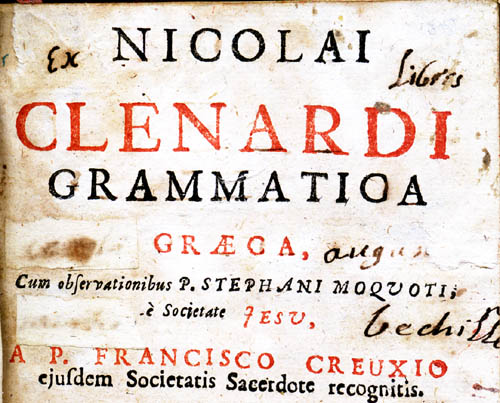 NICOLAI
Ex Libris
CLENARDI
GRAMMATICA
GRÆCA,
augus
Cum obſervationibus P. STEPHANI MOQUOTI,
è Societate JESU,
A P. FRANCISCO CREUXIO
ejuſdem Societatis Sacerdote recognitis.